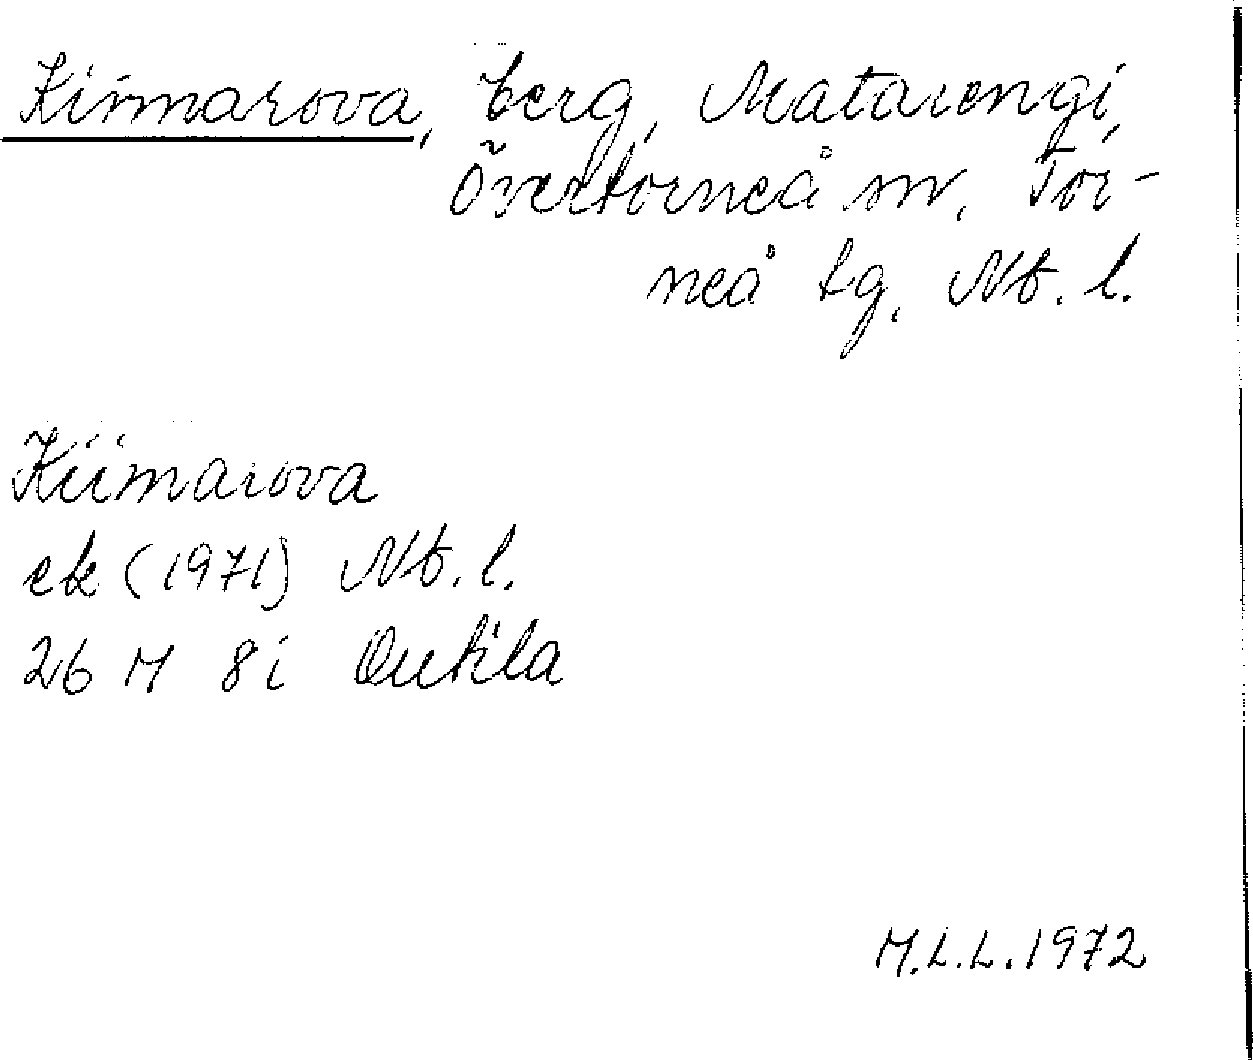 Kiimarova, berg, Matarengi,
Övertorneå sn, Tor-
neå tg, Nb. l.
Kiimarova
ek (1971) Nb. l.
26 M 8i Outila
M.L.L. 1972